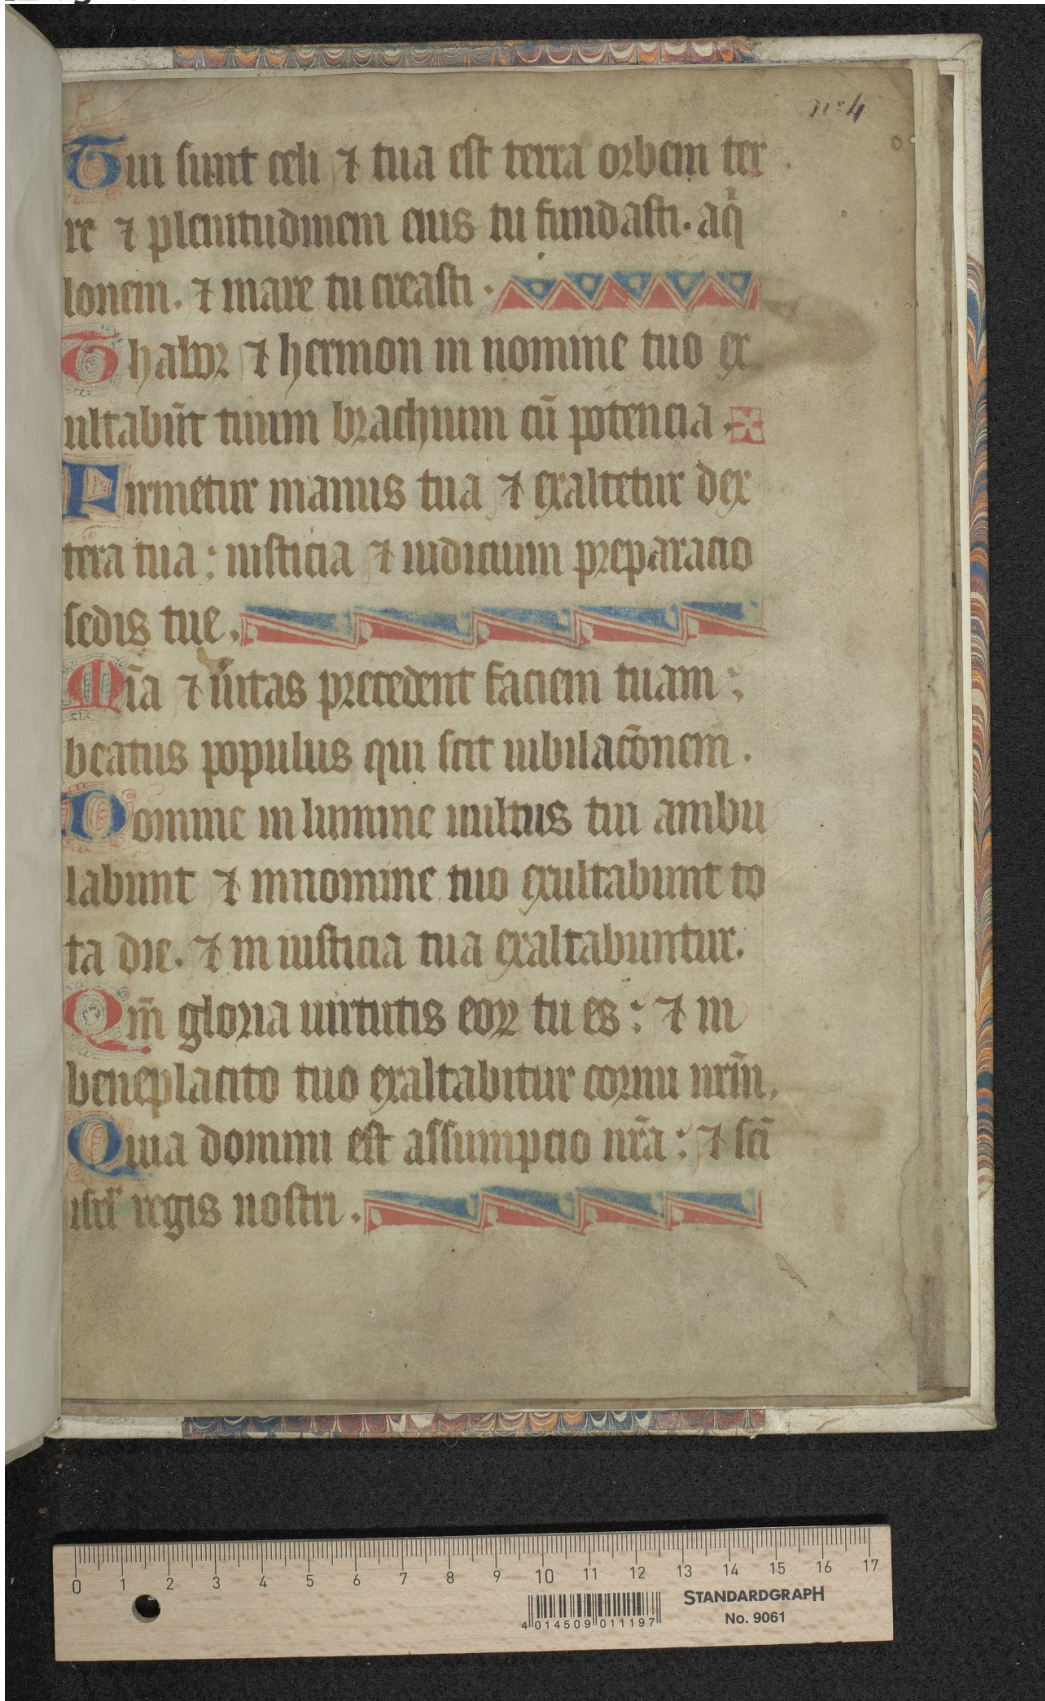 nº 4
Tui sunt celi ⁊ tua est terra orbem ter
re ⁊ plenitudinem eius tu fundasti. aq̇
lonem. ⁊ mare tu creasti.
Thabor ⁊ hermon in nomine tuo ex
ultabūt tuum brachium cū potencia.
Firmetur manus tua ⁊ exaltetur dex
tera tua: iusticia ⁊ iudicium preparacio
sedis tue.
Mīa ⁊ ūitas precedent faciem tuam:
beatus populus qui scit iubilacōnem.
Domine in lumine uultus tui ambu
labunt ⁊ innomine tuo exultabunt to
ta die. ⁊ in iusticia tua exaltabuntur.
Qm̄ gloria uirtutis eoꝝ tu es: ⁊ in
beneplacito tuo exaltabitur cornu nrm̄.
Quia domini est assumpcio nrā: ⁊ scī
isrl̓ regis nostri.
0 1 2 3 4 5 6 7 8 9 10 11 12 13 14 15 16 17
STANDARDGRAPH
No. 9061
4 014509 011197